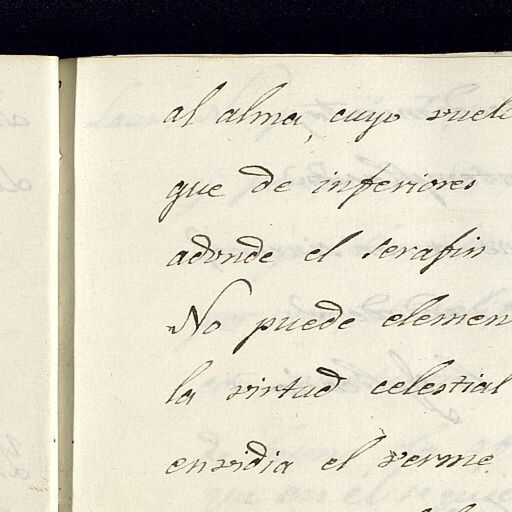 al alma, cuyo vuelo
que de inferiores
adonde el serafin
No puede elemen
la virtud celestial
envidia el verme